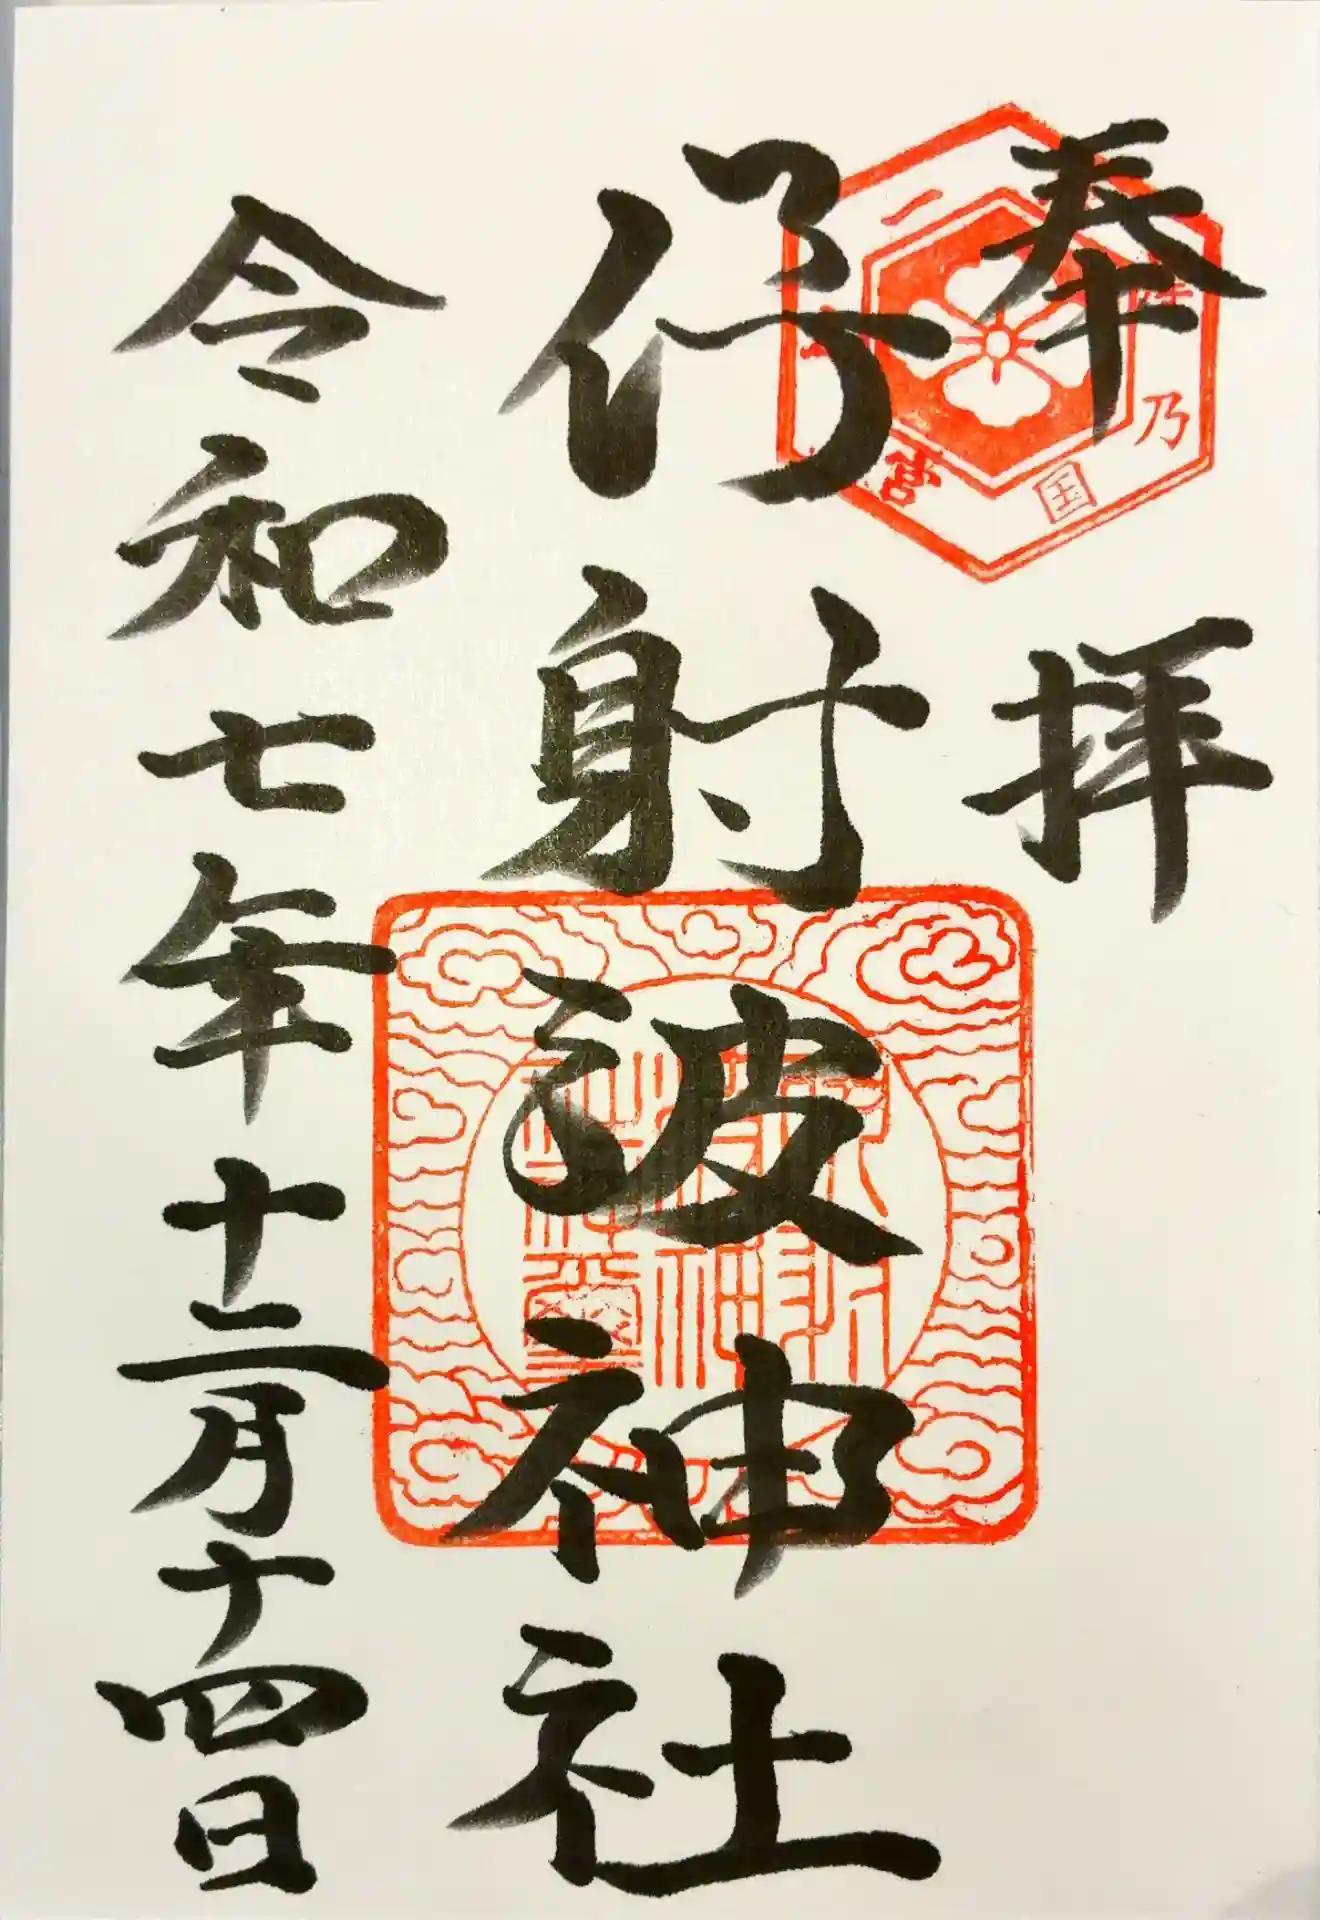 奉拝
伊射波神社
令和七年十二月十四日
乃国
二宮